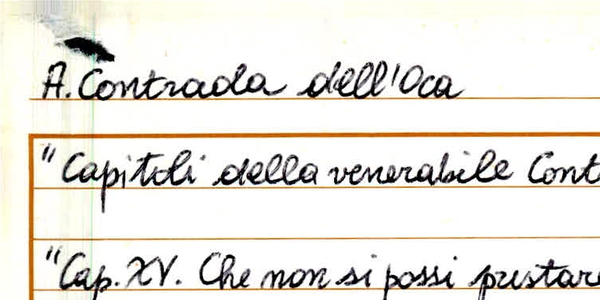 A. Contrada dell'Oca
"Capitoli della venerabile Cont
"Cap. XV. Che non si possi prestare